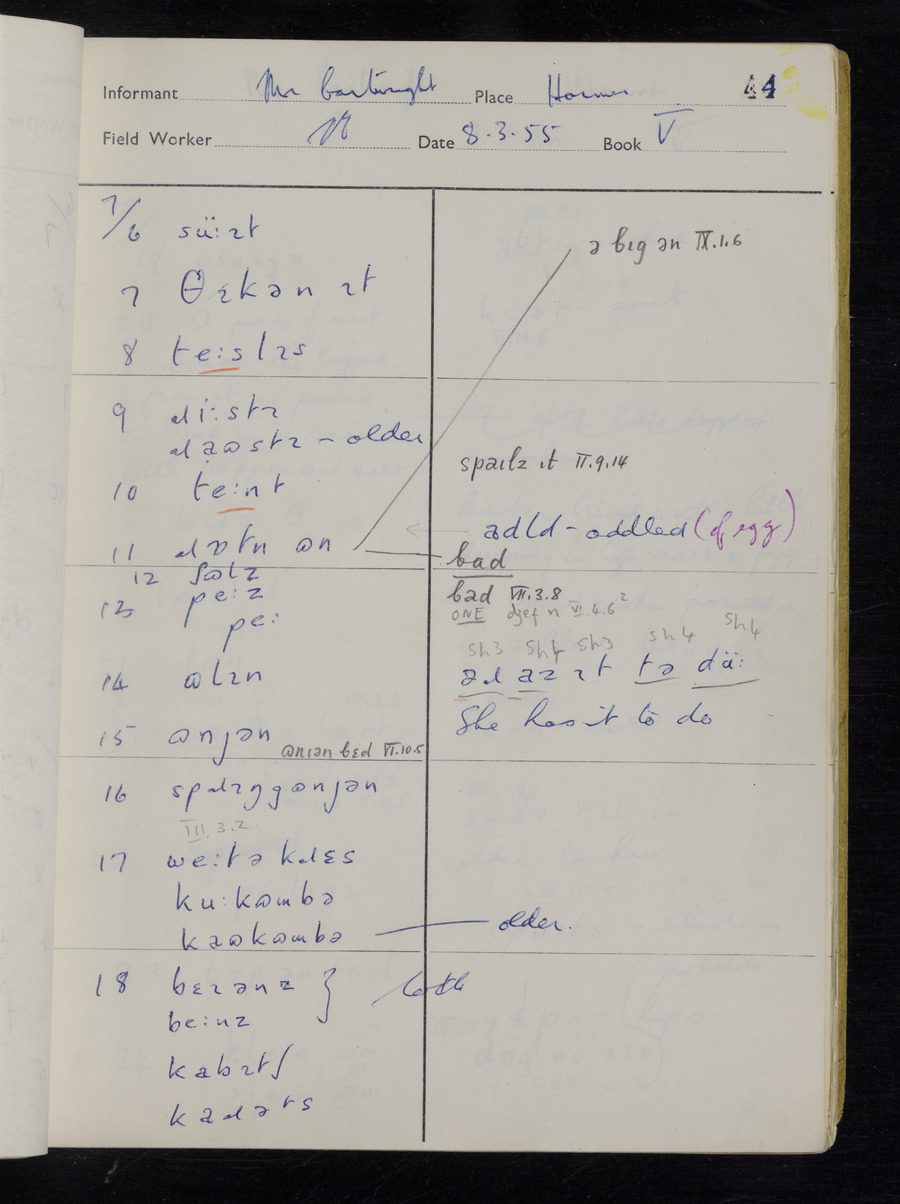 Informant Mr Cartwright Place Horner 44
Field Worker Date 8.3.55 Book V
7/6 sü:ɪt
7 θɪkən ɪt
8 te:slɪs
9 ɹi:stɪ
ɹəʊstɪ – older
10 te:nt
11 ɹɒtn ɷn
12 ʃɷlz
13 pe:z
pe:
14 ɷlɪn
15 ɷnjən
ɷnɪən bɛd VI.10.5
16 spɹɪŋgɷnjən
III.3.2.
17 we:tə kɹɛs
ku:kɷmbə
kəʊkɷmbə — older.
18 bɛɪənz } both
be:nz
kabɪtʃ
kaɹəts
ə bɪg ən IX.1.6
spaɪlz ɪt II.9.14
adld – addled (of egg)
bad
bad VII.3.8
ONE dʒɛf n VI.4.6²
sh3 sh4 sh3 sh4 sh4
əɹ az ɪt tə dü:
She has it to do